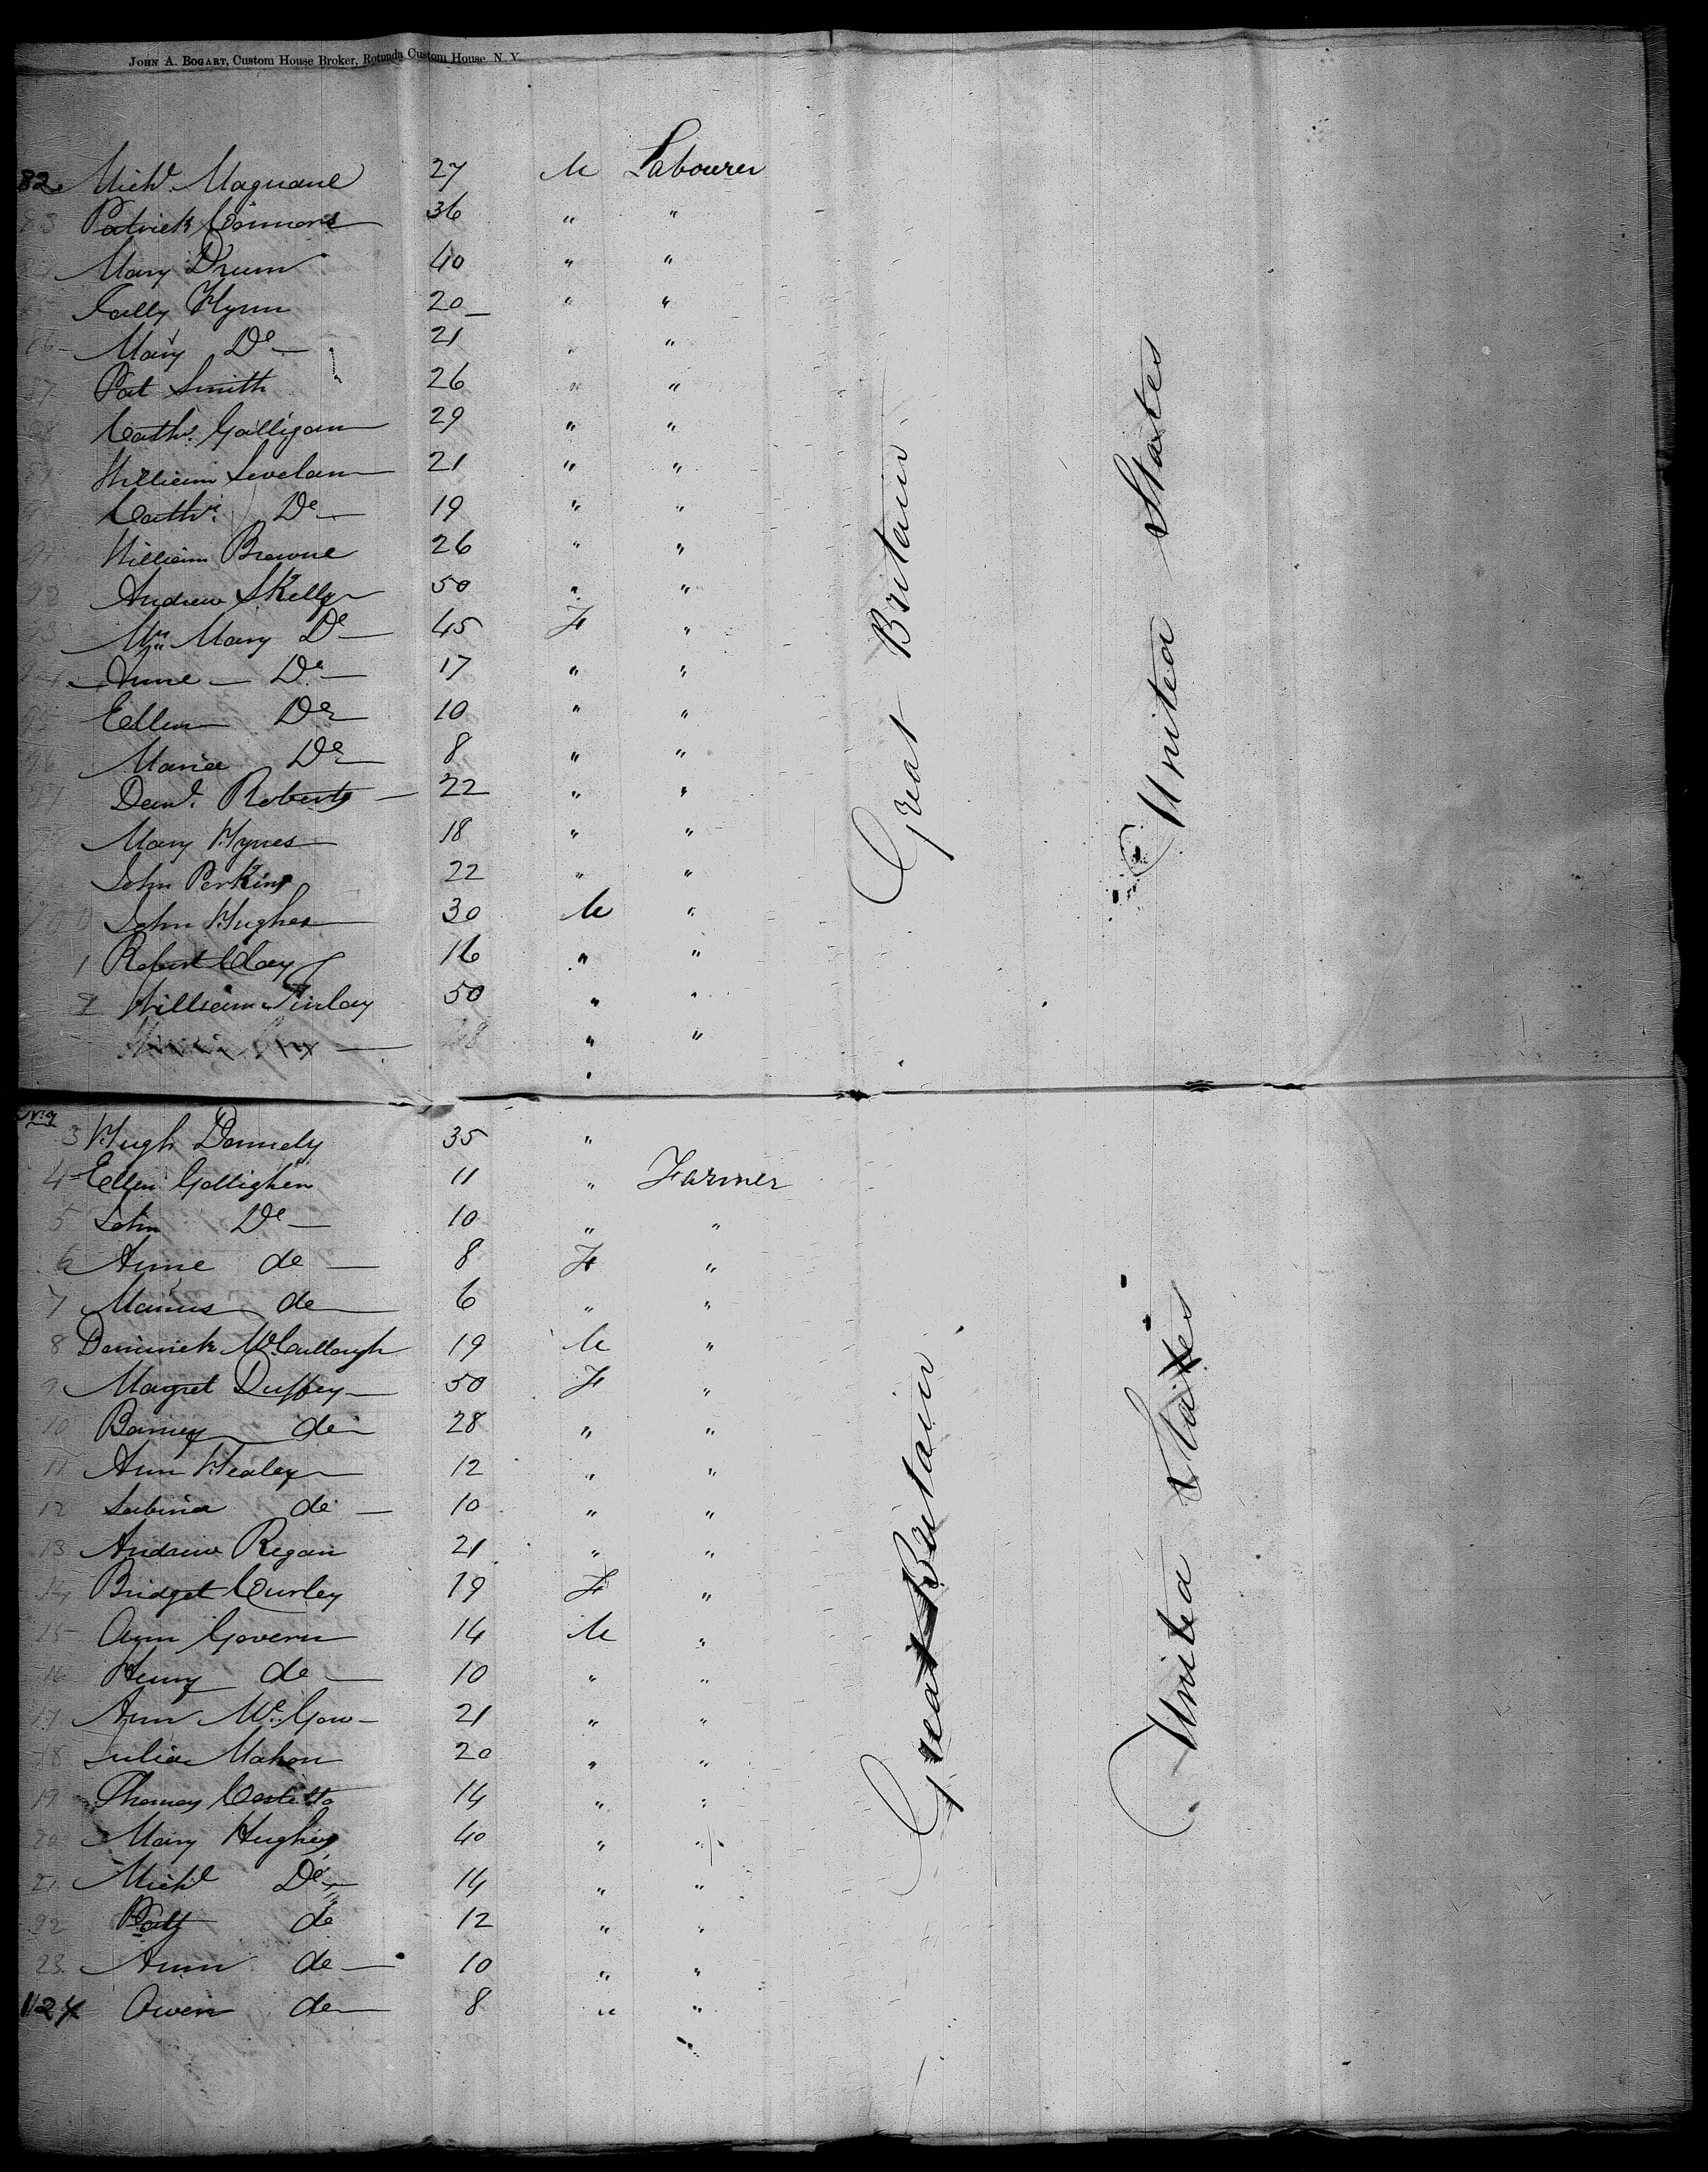 JOHN A. BOGART, Custom House Broker, Rotunda Custom House N. Y.
82 Michl. Magnane 27 M Labourer
83 Patrick Connors 36 " "
Mary Drum 40 " "
Flynn 20 " "
86 Mary Do 21 " "
87 Pat Smith 26 " "
88 Cathe. Galligan 29 " "
William Levelan 21 " "
Cathe. Do 19 " "
91 William Browne 26 " "
92 Andrew Skelly 50 " "
93 Mrs Mary Do 45 F "
94 Anne Do 17 " "
95 Ellen Do 10 " "
96 Maria Do 8 " "
97 Danl. Roberts 22 " "
Mary Hynes 18 " "
John Perkins 22 " "
100 John Hughes 30 M "
1 Robert Clay 16 " "
2 William Finlay 50 " "
" "
3 Hugh Donnely 35 "
4 Ellen Golligher 11 " Farmer
5 John Do 10 " "
6 Anne do 8 F "
7 Manus do 6 " "
8 Dominick McCullough 19 M "
9 Magret Duffey 50 F "
10 Barney do 28 " "
11 Ann Healey 12 " "
12 Sabina do 10 " "
13 Andrew Regan 21 " "
14 Bridget Curley 19 F "
15 Ann Govern 14 M "
16 Henry do 10 " "
17 Ann McGow 21 " "
18 Julia Mahon 20 " "
19 Thomas Costello 14 " "
20 Mary Hughes 40 " "
21 Michl Do 14 " "
22 Patt do 12 " "
23 Ann do 10 " "
1124 Owen do 8 " "
Great Britain
United States
Great Britain
United States